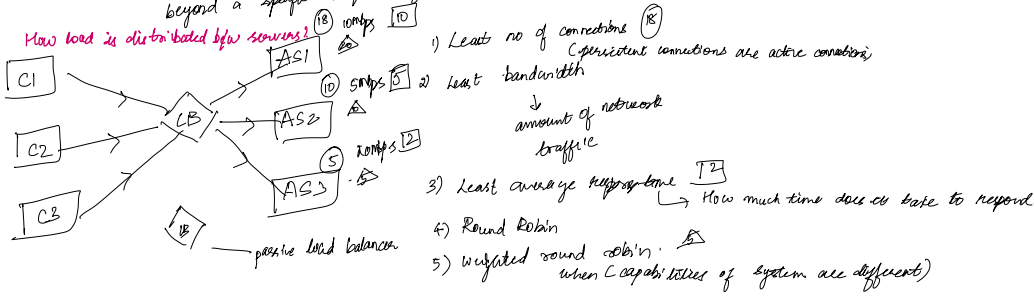 beyond a
How load is distributed b/w servers?
C1
C2
C3
LB
18
10mbps
10
AS1
10
5mbps
5
AS2
5
2
AS3
5
LB
passive load balancer
1) Least no of connections 18
(persistent connections are active connections)
2) Least bandwidth
amount of network
traffic
3) Least average 2
How much time does it take to respond
4) Round Robin
5) Weighted round robin. 5
when (capabilities of system are different)